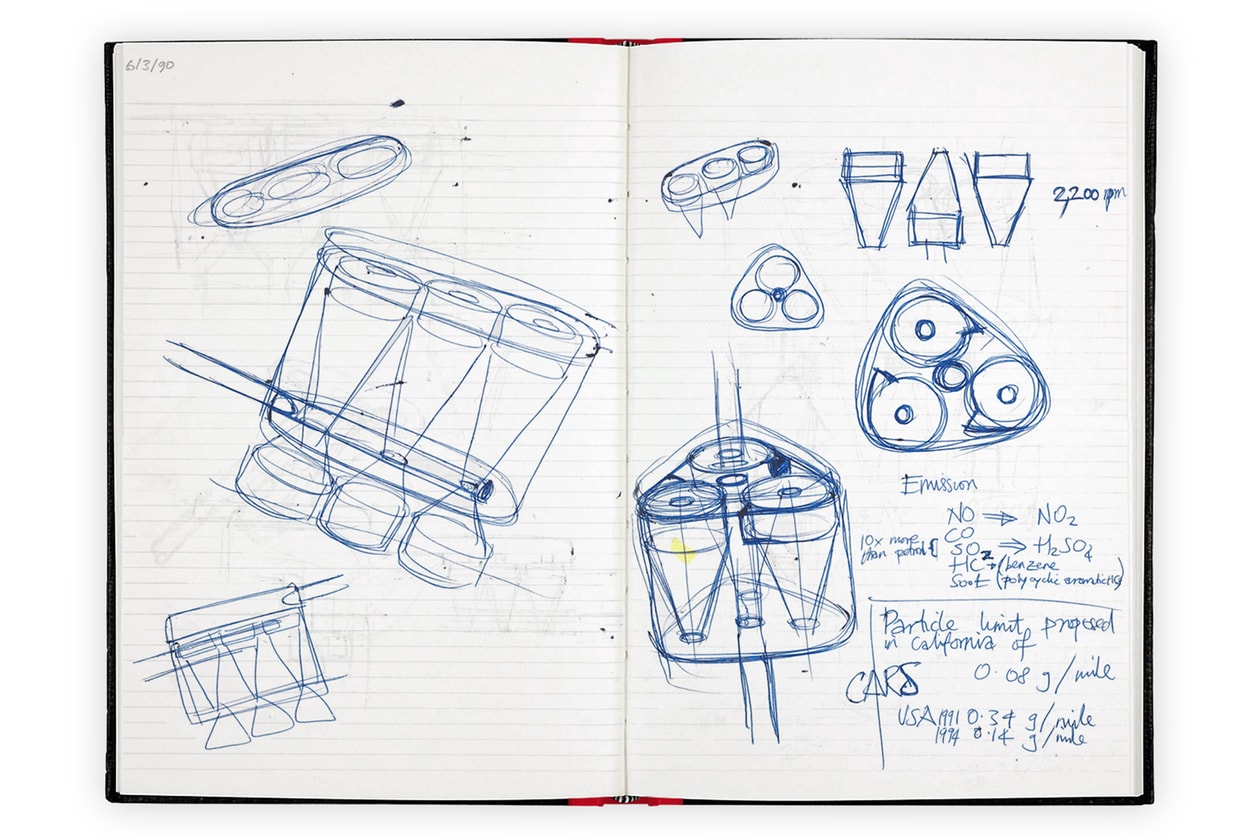 6/3/90
2,200 rpm
Emission
NO ⇒ NO2
CO
10x more than petrol { SO2 ⇒ H2SO4
HC → (benzene
Soot (polycyclic aromatic HC)
Particle limit, proposed
in California of
0.08 g/mile
CARS
USA 1991 0.34 g/mile
1994 0.14 g/mile